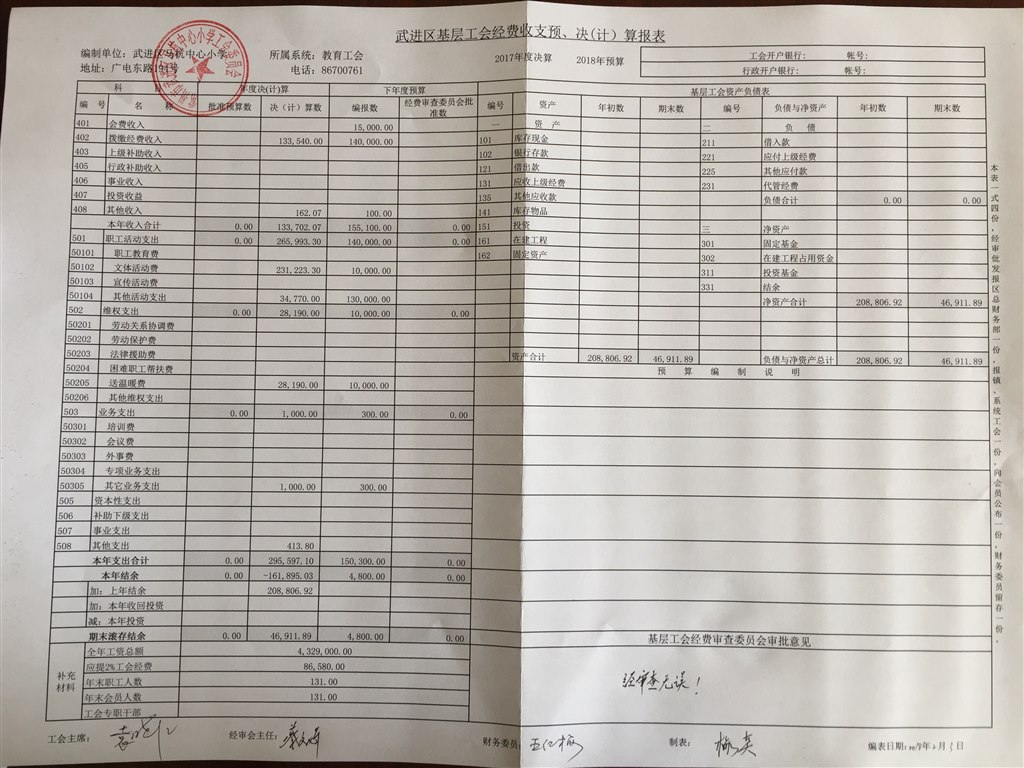 武进区基层工会经费收支预、决（计）算报表
编制单位：武进区马杭中心小学 所属系统：教育工会 2017年度决算 2018年预算 工会开户银行： 帐号：
地址：广电东路 电话：86700761 行政开户银行： 帐号：
科 年度决(计)算 下年度预算
编 号 名 称 批准预算数 决（计）算数 编报数 经费审查委员会批准数
401 会费收入 15,000.00
402 拨缴经费收入 133,540.00 140,000.00
403 上级补助收入
405 行政补助收入
406 事业收入
407 投资收益
408 其他收入 162.07 100.00
本年收入合计 0.00 133,702.07 155,100.00 0.00
501 职工活动支出 0.00 265,993.30 140,000.00 0.00
50101 职工教育费
50102 文体活动费 231,223.30 10,000.00
50103 宣传活动费
50104 其他活动支出 34,770.00 130,000.00
502 维权支出 0.00 28,190.00 10,000.00 0.00
50201 劳动关系协调费
50202 劳动保护费
50203 法律援助费
50204 困难职工帮扶费
50205 送温暖费 28,190.00 10,000.00
50206 其他维权支出
503 业务支出 0.00 1,000.00 300.00 0.00
50301 培训费
50302 会议费
50303 外事费
50304 专项业务支出
50305 其它业务支出 1,000.00 300.00
505 资本性支出
506 补助下级支出
507 事业支出
508 其他支出 413.80
本年支出合计 0.00 295,597.10 150,300.00 0.00
本年结余 0.00 -161,895.03 4,800.00 0.00
加：上年结余 208,806.92
加：本年收回投资
减：本年投资
期末滚存结余 0.00 46,911.89 4,800.00 0.00
补充材料
全年工资总额 4,329,000.00
应提2%工会经费 86,580.00
年末职工人数 131.00
年末会员人数 131.00
工会专职干部
基层工会资产负债表
编号 资产 年初数 期末数 编号 负债与净资产 年初数 期末数
一 资 产 二 负 债
101 库存现金 211 借入款
102 银行存款 221 应付上级经费
121 借出款 225 其他应付款
131 应收上级经费 231 代管经费
135 其他应收款 负债合计 0.00 0.00
141 库存物品
151 投资 三 净资产
161 在建工程 301 固定基金
162 固定资产 302 在建工程占用资金
311 投资基金
331 结余
净资产合计 208,806.92 46,911.89
资产合计 208,806.92 46,911.89 负债与净资产总计 208,806.92 46,911.89
预 算 编 制 说 明
基层工会经费审查委员会审批意见
经审查无误！
本表一式四份，经审批发报区总财务部一份，报镇、系统工会一份，向会员公布一份，财务委员留存一份。
工会主席： 经审会主任： 财务委员： 制表： 编表日期：2018年2月 日